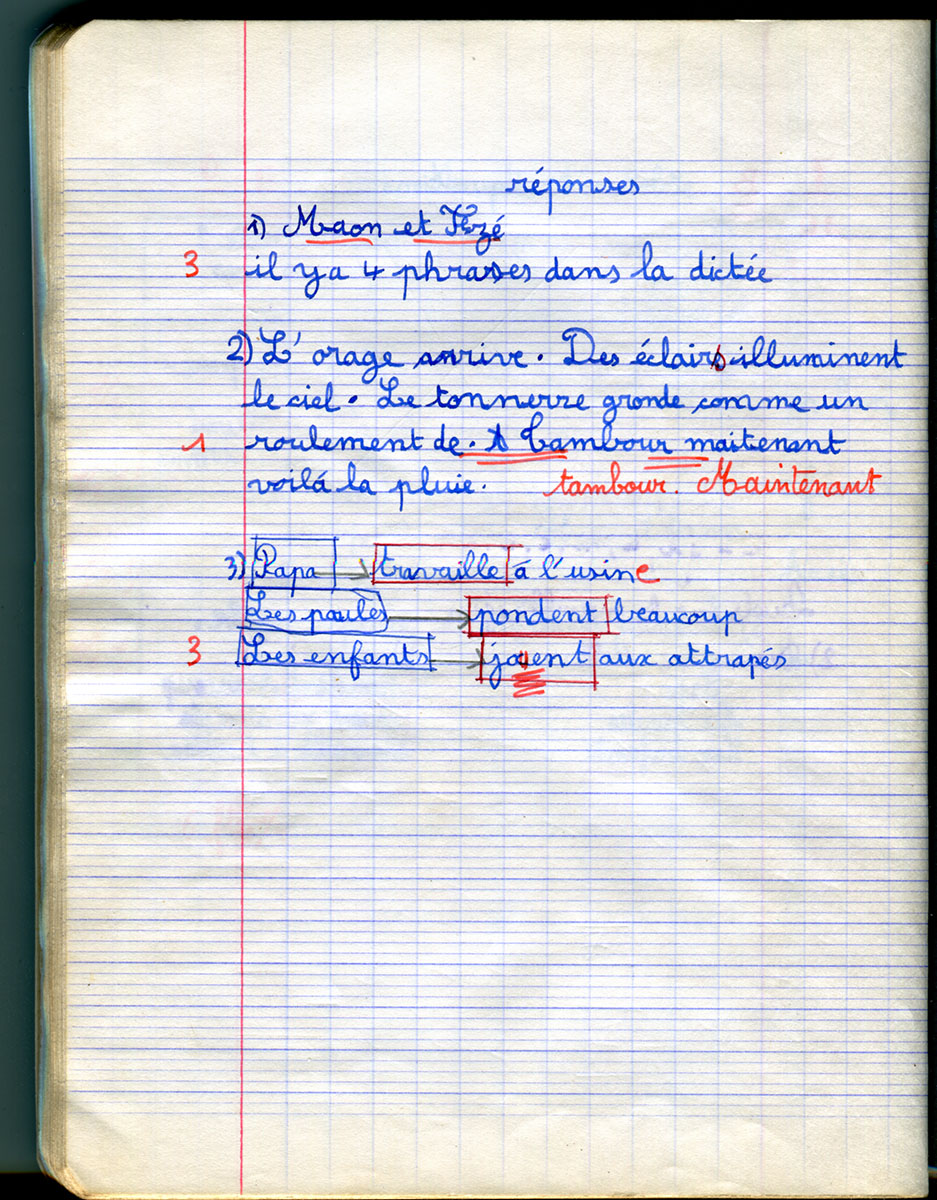 réponses
1) Maon et Zézé
3 il y a 4 phrases dans la dictée
2) L'orage arrive. Des éclairs illuminent
le ciel. Le tonnerre gronde comme un
1 roulement de. Tambour maitenant
voilá la pluie. tambour. Maintenant
3) Papa travaille á l'usine
Les poules pondent beaucoup
3 Les enfants jouent aux attrapés